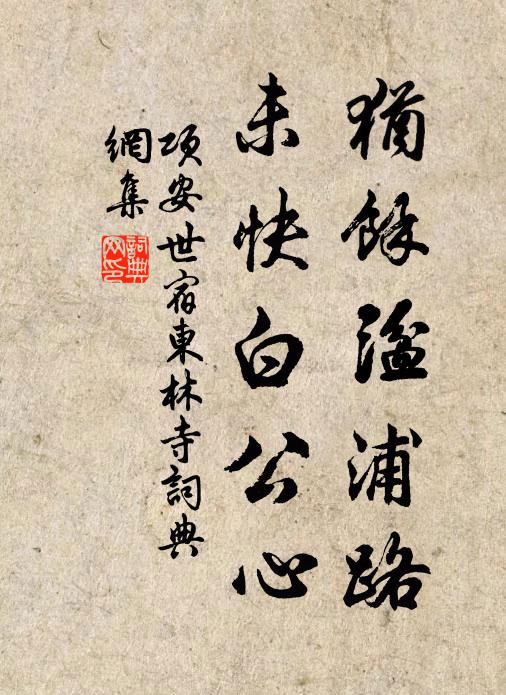 猶餘湓浦路
未快白公心
項安世宿東林寺詞典
網集
詞典
网印